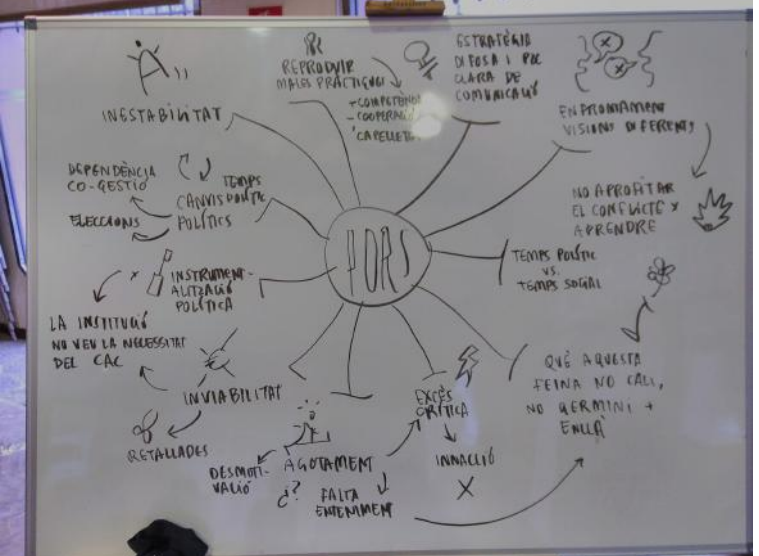 PORS
INESTABILITAT
REPRODUIR
MALES PRÀCTIQUES
+ COMPETÈNCIA
- COOPERACIÓ
ESTRATÈGIA
DIFOSA I POC
CLARA DE
COMUNICACIÓ
ENFRONTAMENT
VISIONS DIFERENTS
NO APROFITAR
EL CONFLICTE X
APRENDRE
TEMPS POLÍTIC
VS.
TEMPS SOCIAL
QUÈ AQUESTA
FEINA NO CALI,
NO GERMINI +
ENLLÀ
EXCÉS
CRÍTICA
INNACCIÓ
X
AGOTAMENT
DESMOTI-
VACIÓ
¿?
FALTA
ENTENIMENT
INVIABILITAT
RETALLADES
INSTRUMENT-
ALITZACIÓ
POLÍTICA
LA INSTITUCIÓ
NO VEU LA NECESSITAT
DEL CAC
TEMPS
CANVIS POLÍTIC
POLÍTICS
DEPENDÈNCIA
CO-GESTIÓ
ELECCIONS